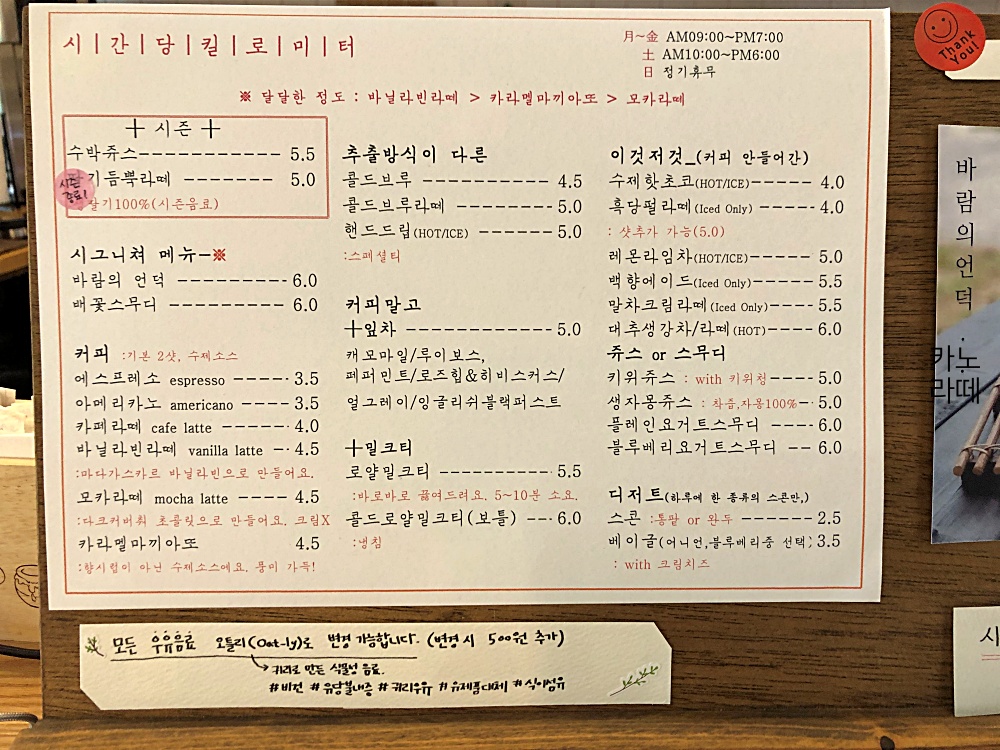 시|간|당|킬|로|미|터
月~金 AM09:00~PM7:00
土 AM10:00~PM6:00
日 정기휴무
※ 달달한 정도 : 바닐라빈라떼 > 카라멜마끼아또 > 모카라떼
+ 시즌 +
수박쥬스----------- 5.5
기듬뿍라떼 ------- 5.0
시즌 종료!
딸기100%(시즌음료)
시그니쳐 메뉴-※
바람의 언덕 ---------- 6.0
배꽃스무디 --------- 6.0
커피 :기본 2샷, 수제소스
에스프레소 espresso ----- 3.5
아메리카노 americano ---- 3.5
카페라떼 cafe latte ----- 4.0
바닐라빈라떼 vanilla latte -- 4.5
:마다가스카르 바닐라빈으로 만들어요.
모카라떼 mocha latte ---- 4.5
:다크커버춰 초콜릿으로 만들어요. 크림X
카라멜마끼아또 4.5
:향시럽이 아닌 수제소스예요. 풍미 가득!
추출방식이 다른
콜드브루 ----------- 4.5
콜드브루라떼 -------- 5.0
핸드드립(HOT/ICE) ------ 5.0
:스페셜티
커피말고
+잎차 ------------- 5.0
캐모마일/루이보스,
페퍼민트/로즈힙&히비스커스/
얼그레이/잉글리쉬블랙퍼스트
+밀크티
로얄밀크티 ---------- 5.5
:바로바로 끓여드려요. 5~10분 소요.
콜드로얄밀크티(보틀) --- 6.0
:냉침
이것저것_(커피 안들어간)
수제핫초코(HOT/ICE)----- 4.0
흑당펄라떼(Iced Only) ---- 4.0
: 샷추가 가능(5.0)
레몬라임차(HOT/ICE)----- 5.0
백향에이드(Iced Only)---- 5.5
말차크림라떼(Iced Only)---- 5.5
대추생강차/라떼(HOT)----- 6.0
쥬스 or 스무디
키위쥬스 : with 키위청---- 5.0
생자몽쥬스 : 착즙,자몽100%-- 5.0
플레인요거트스무디 ---- 6.0
블루베리요거트스무디 --- 6.0
디저트(하루에 한 종류의 스콘만,)
스콘 :통팥 or 완두 ------ 2.5
베이글(어니언,블루베리중 선택) 3.5
: with 크림치즈
모든 우유음료 오틀리(Oat-ly)로 변경 가능합니다. (변경 시 500원 추가)
귀리로 만든 식물성 음료.
#비건 #유당불내증 #귀리우유 #유제품대체 #식이섬유
Thank You!
바람의언덕
카노
라떼
시